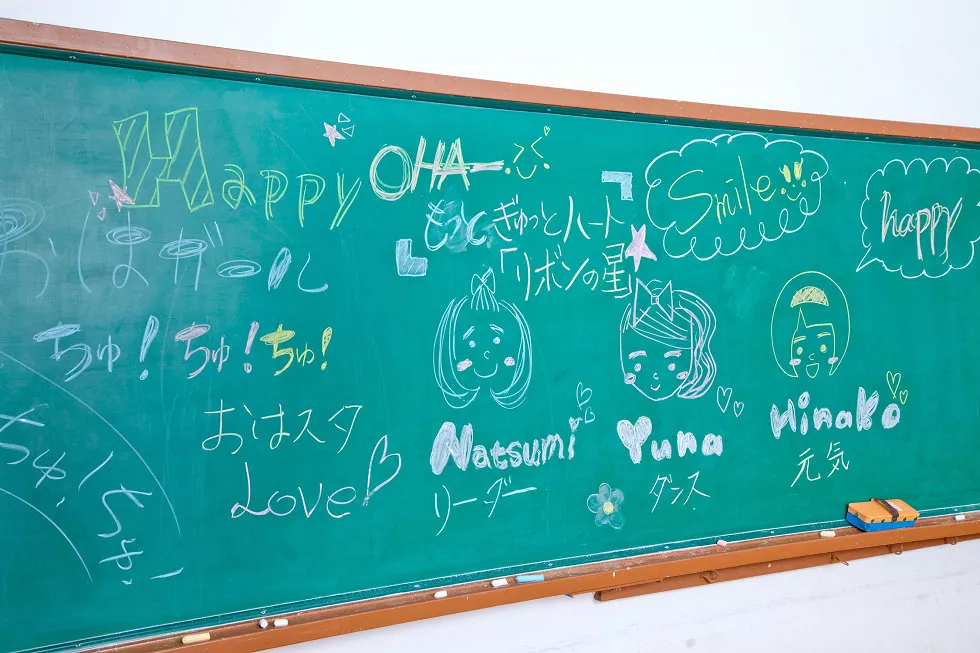 Happy
OHA-
Smile!!
happy
おはガール
もっとぎゅっとハート
「リボンの星」
ちゅ!ちゅ!ちゅ!
おはスタ
Love
Natsumi
リーダー
Yuna
ダンス
Hinako
元気